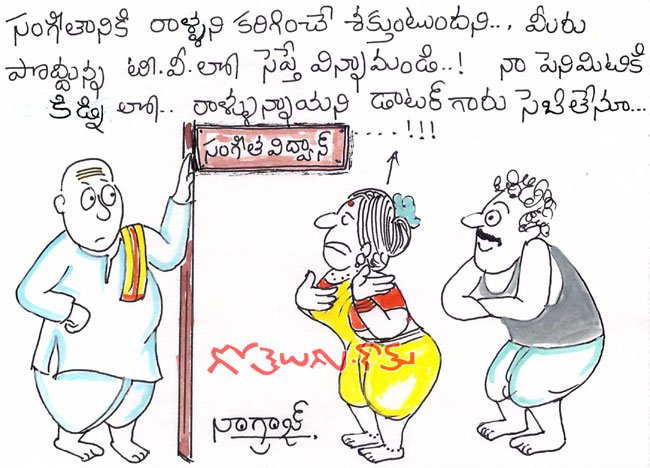 సంగీతానికి రాళ్ళని కరిగించే శక్తుంటుందని... మీరు
పొద్దున్న టి.వి.లో సెప్తే విన్నామండి..! నా పెనిమిటికి
కిడ్ని లో.. రాళ్ళున్నాయని డాటర్ గారు సెబితేనూ...
....!!!
సంగీత విద్వాన్
గోతెలుగు.కామ్
నాగ్రాజ్.